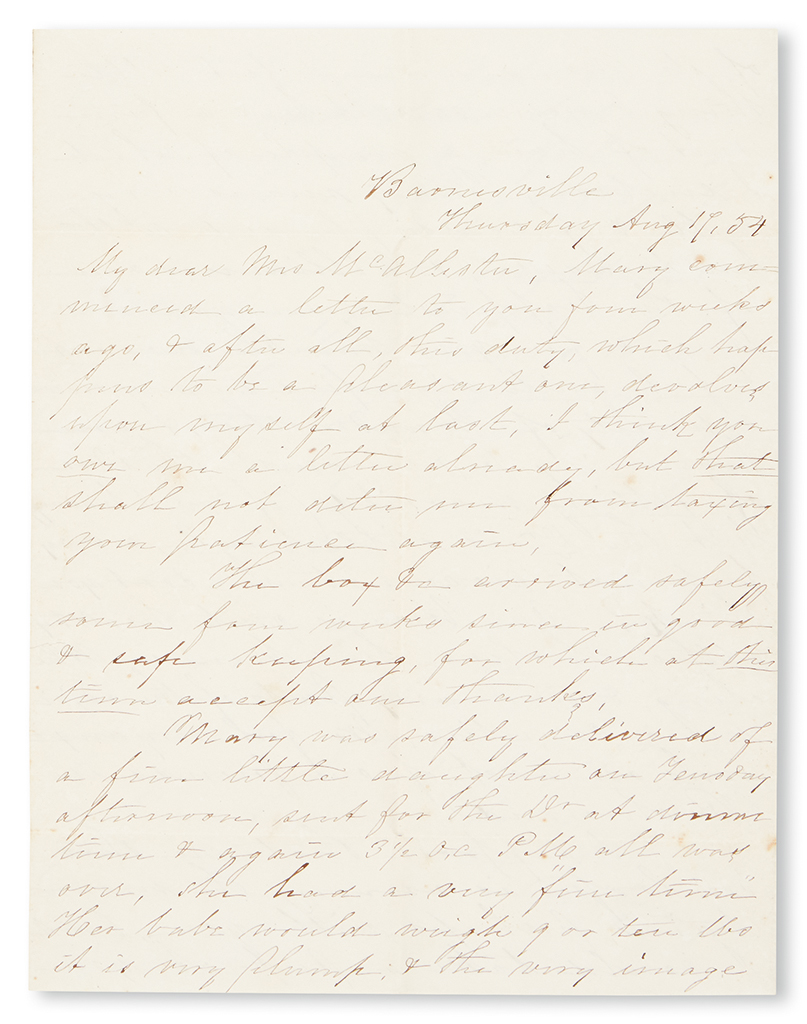 Barnesville
Thursday Aug 17, 54
My dear Mrs McAllister, Mary com-
menced a letter to you four weeks
ago, & after all, this duty, which hap
pens to be a pleasant one, devolves
upon myself at last, I think you
owe me a letter already, but that
shall not deter me from taxing
your patience again,
The box &c arrived safely
some four weeks since in good
& safe keeping, for which at this
time accept our thanks,
Mary was safely delivered of
a fine little daughter on Tuesday
afternoon, sent for the Dr at dinner
time & again 3½ o,c P.M. all was
over, she had a very "fine time"
Her babe would weigh 9 or ten lbs
it is very plump, & the very image